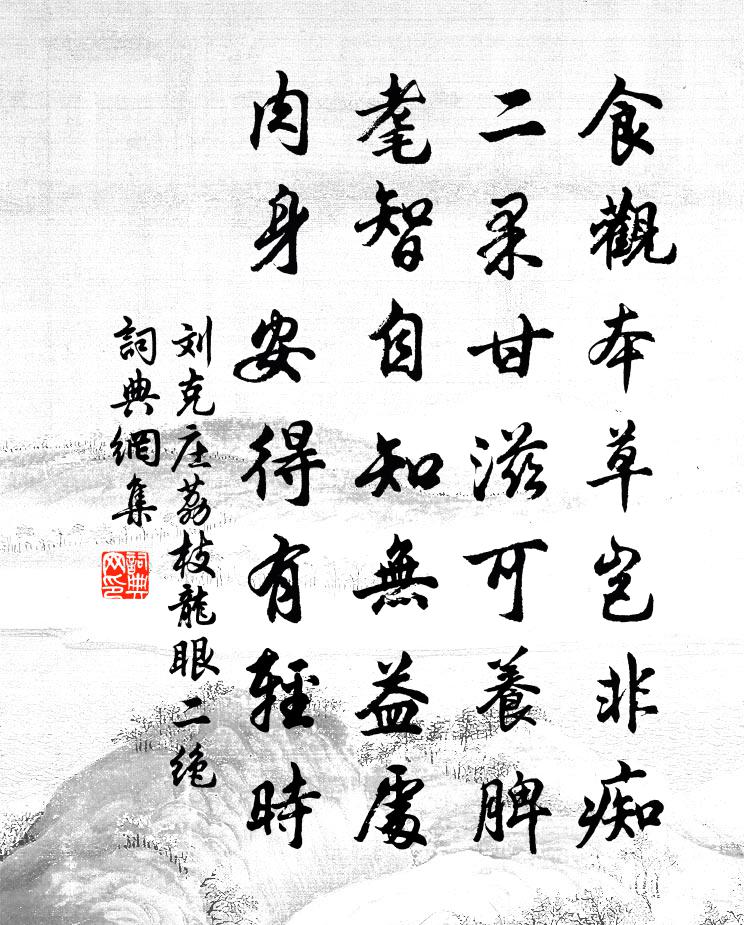 食觀本草豈非痴
二果甘滋可養脾
耄智自知無益處
肉身安得有輕時
刘克庄荔枝龍眼二绝
詞典網集
詞典网印